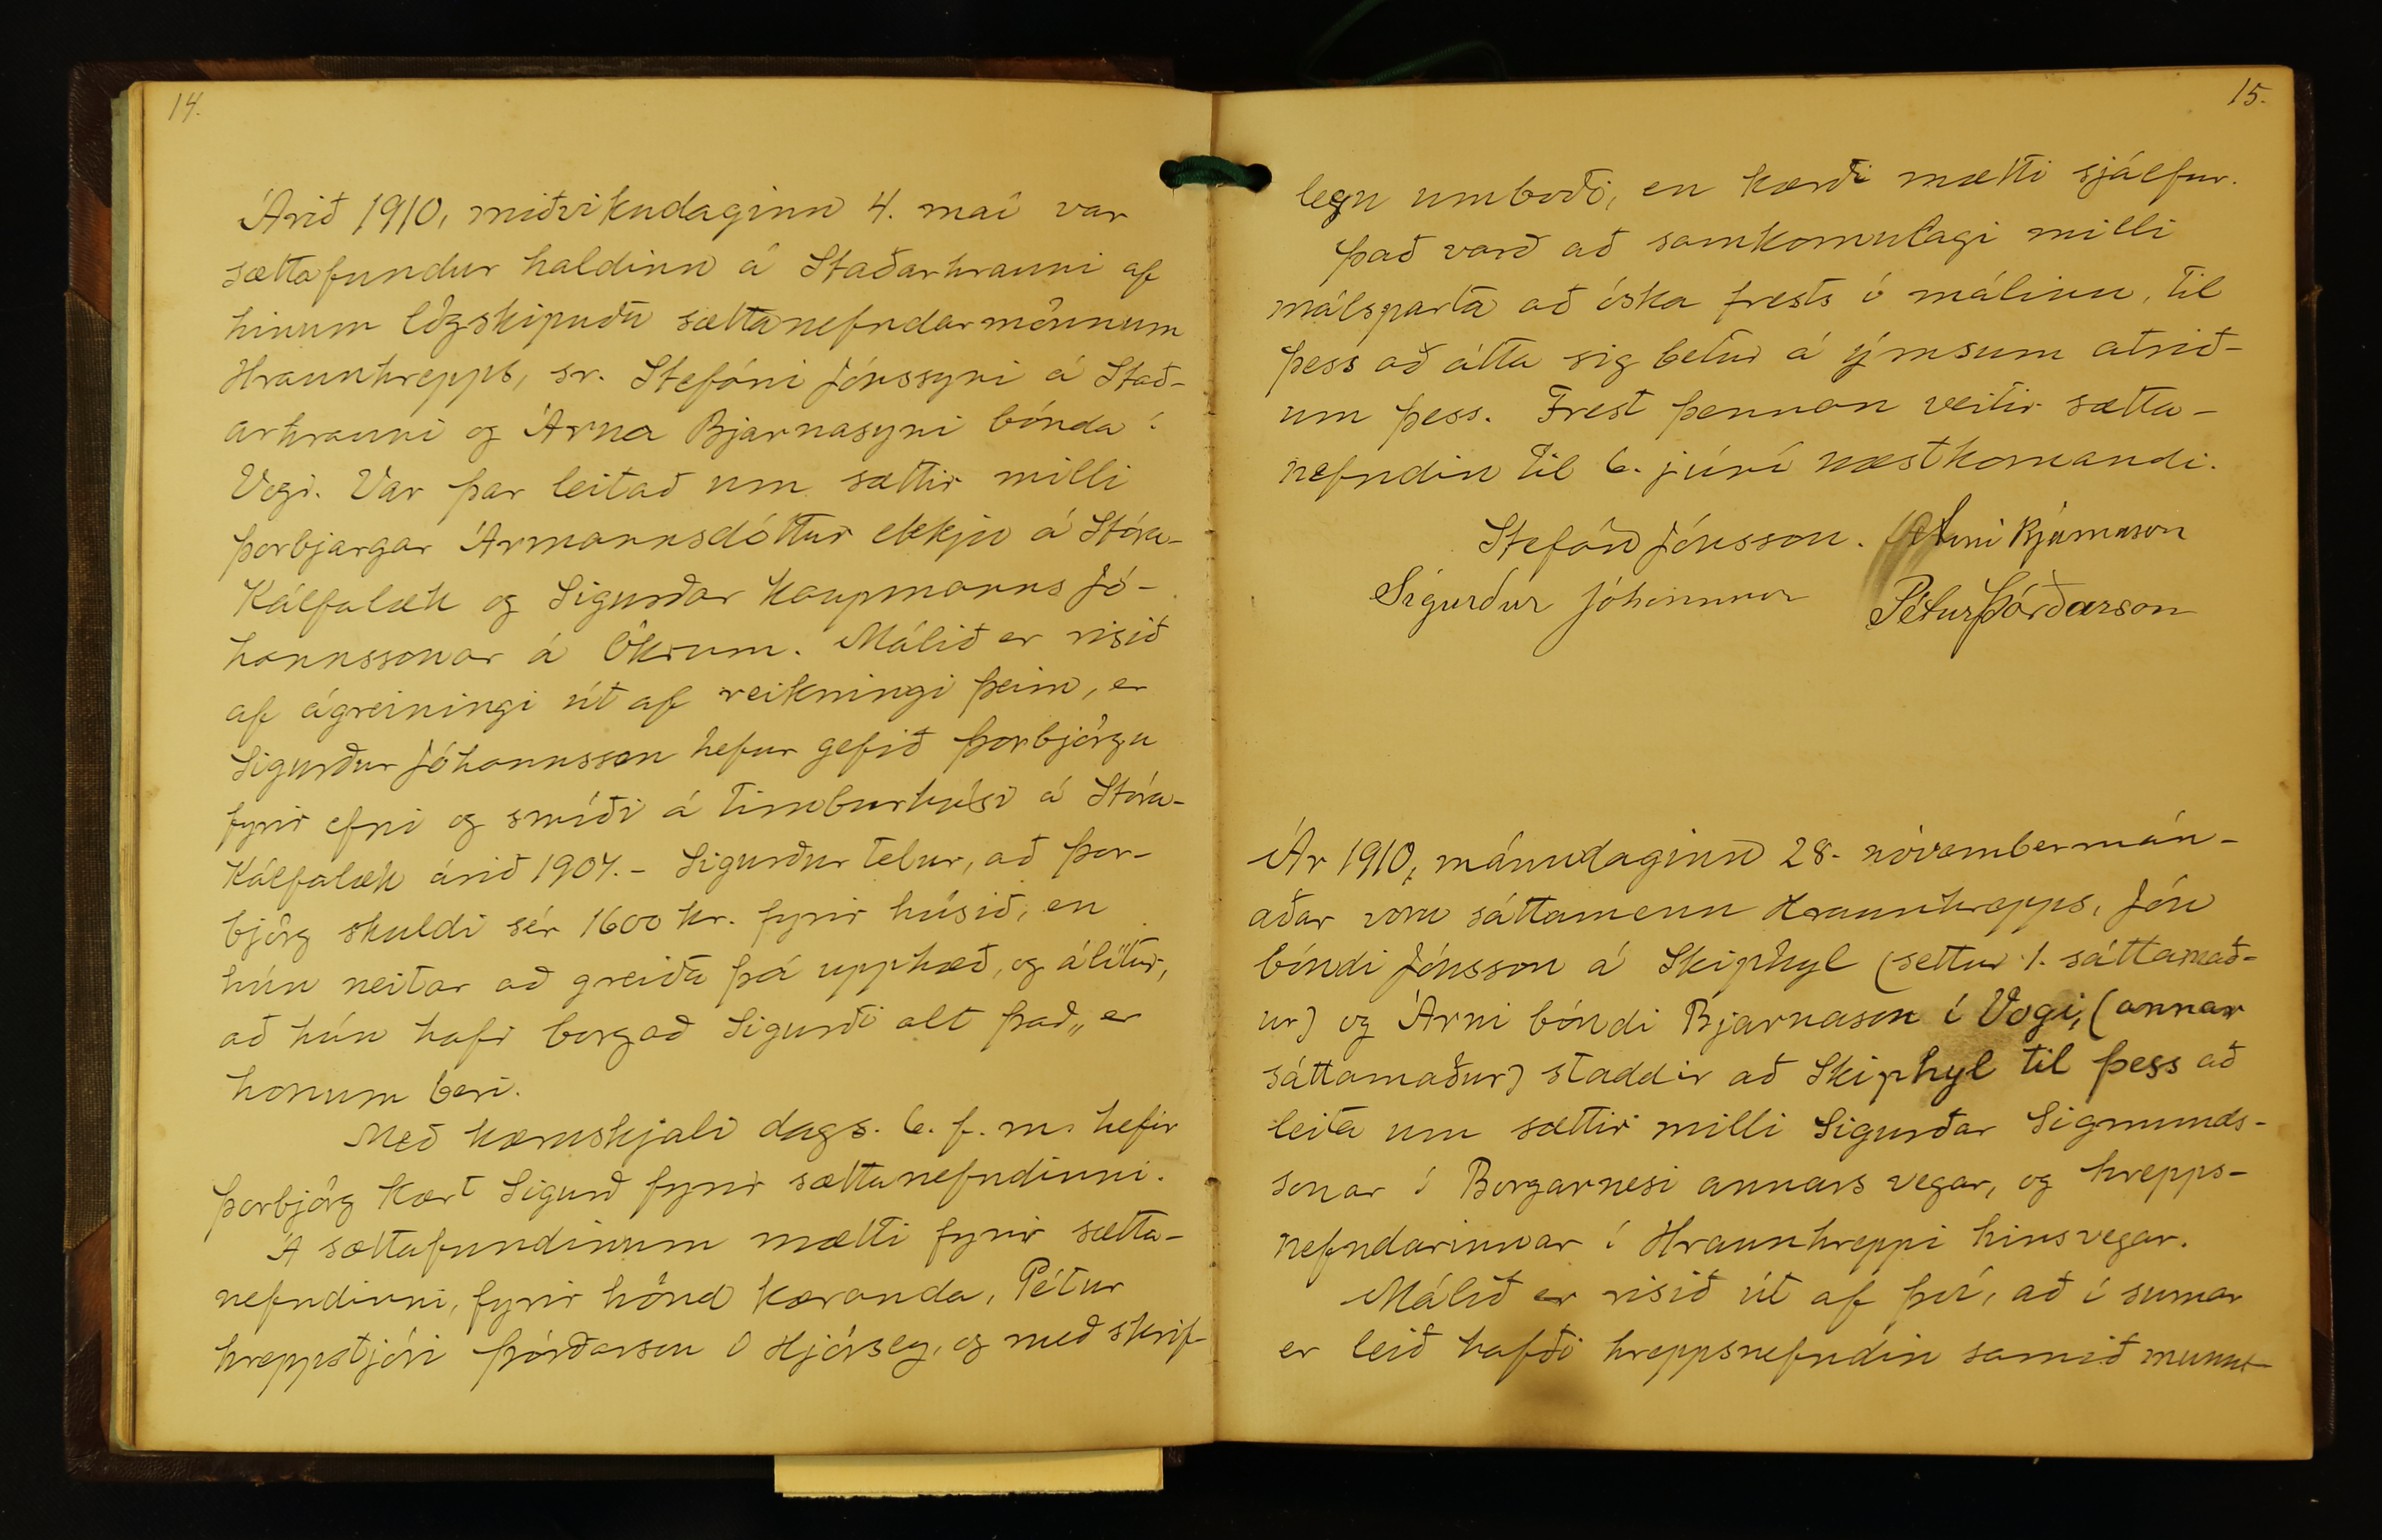 14.
Árið 1910, miðvikudaginn 4. maí var
sættafundur haldinn á Staðarhrauni af
hinum lögskipuðu sættanefndarmönnum
Hraunhrepps, sr. Stefáni Jónssyni á Stað-
arhrauni og Árna Bjarnasyni bónda í
Vogi. Var þar leitað um sættir milli
Þorbjargar Ármannsdóttur ekkju á Stóra-
Kálfalæk og Sigurðar kaupmanns Jó-
hannssonar á Ökrum. Málið er risið
af ágreiningi út af reikningi þeim, er
Sigurður Jóhannsson hefur gefið Þorbjörgu
fyrir efni og smíði á timburhúsi á Stóra-
Kálfalæk árið 1907. - Sigurður telur, að Þor-
björg skuldi sér 1600 kr. fyrir húsið, en
hún neitar að greiða þá upphæð, og álítur,
að hún hafi borgað Sigurði alt það, er
honum beri.
Með kæruskjali dags. 6. f. m. hefir
Þorbjörg kært Sigurð fyrir sættanefndinni.
Á sættafundinum mætti fyrir sætta-
nefndinni, fyrir hönd kæranda, Pétur
hreppstjóri Þórðarson í Hjörsey, og með skrif-
15.
legu umboði, en kærði mætti sjálfur.
Það varð að samkomulagi milli
málsparta að óska frests í málinu, til
þess að átta sig betur á ýmsum atrið-
um þess. Frest þennan veitir sætta-
nefndin til 6. júní næstkomandi.
Stefán Jónsson. Árni Bjarnason
Sigurður Jóhannsson Pétur Þórðarson
Ár 1910, mánudaginn 28. nóvembermán-
aðar voru sáttamenn Hraunhrepps, Jón
bóndi Jónsson á Skiphyl (settur 1. sáttamað-
ur) og Árni bóndi Bjarnason í Vogi, (annar
sáttamaður) staddir að Skiphyl til þess að
leita um sættir milli Sigurðar Sigmunds-
sonar í Borgarnesi annars vegar, og hrepps-
nefndarinnar í Hraunhreppi hins vegar.
Málið er risið út af því, að í sumar
er leið hafði hreppsnefndin samið munnt-